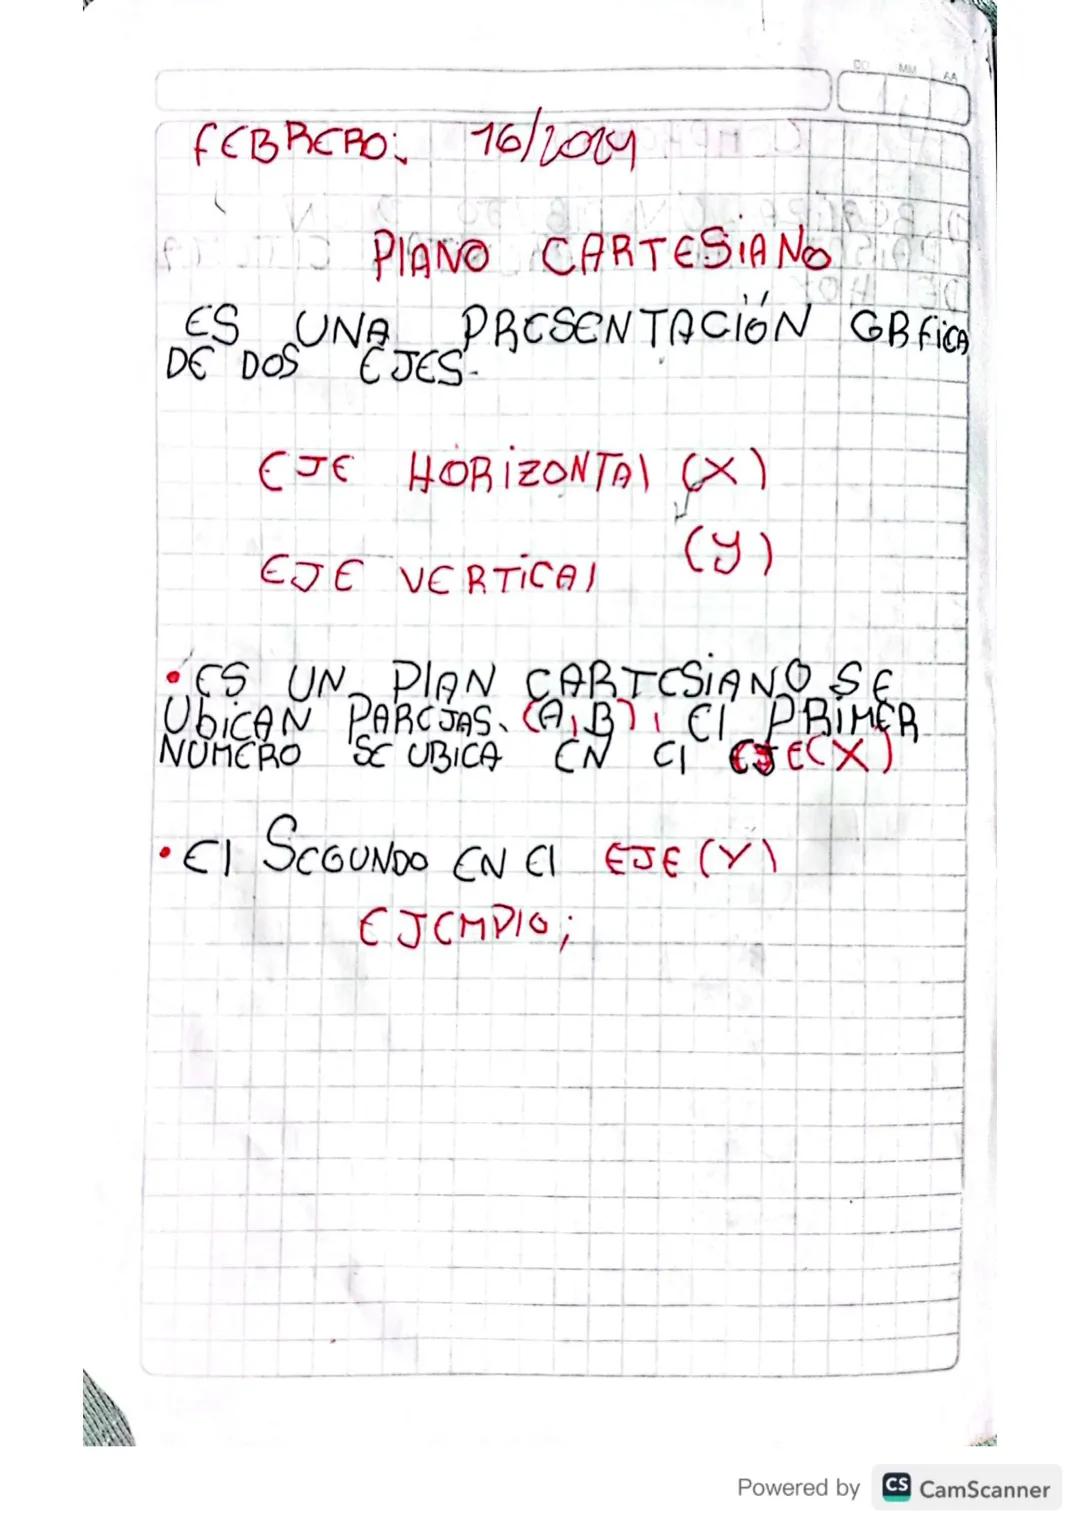 DD MM AA
FEBRERO: 16/2024
PlANO CARTESiANO
ES UNA PRESENTACIÓN GRFiCA
DE DOS EJES.
EJE HORiZONTAl (X)
EJE VERTiCAl (Y)
• ES UN PlAN CARTESiANO SE
UbiCAN PAREJAS. (A,B), El PRiMER
NUMERO SE UBICA EN El EJE(X)
• El SEGUNDO EN El EJE (Y)
EJEMPlO;
Powered by CS CamScanner